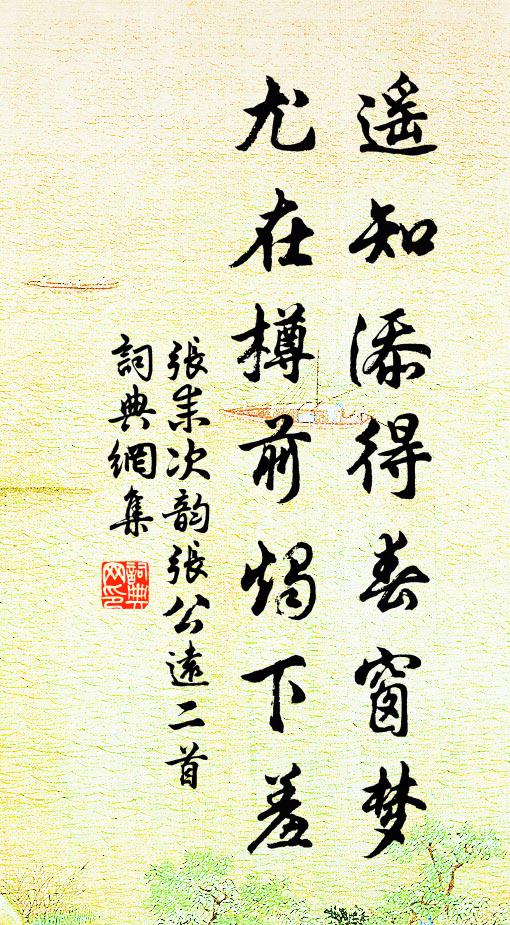 遥知添得春窗梦
尤在樽前烛下羞
張耒次韵張公遠二首
詞典網集
詞典網印